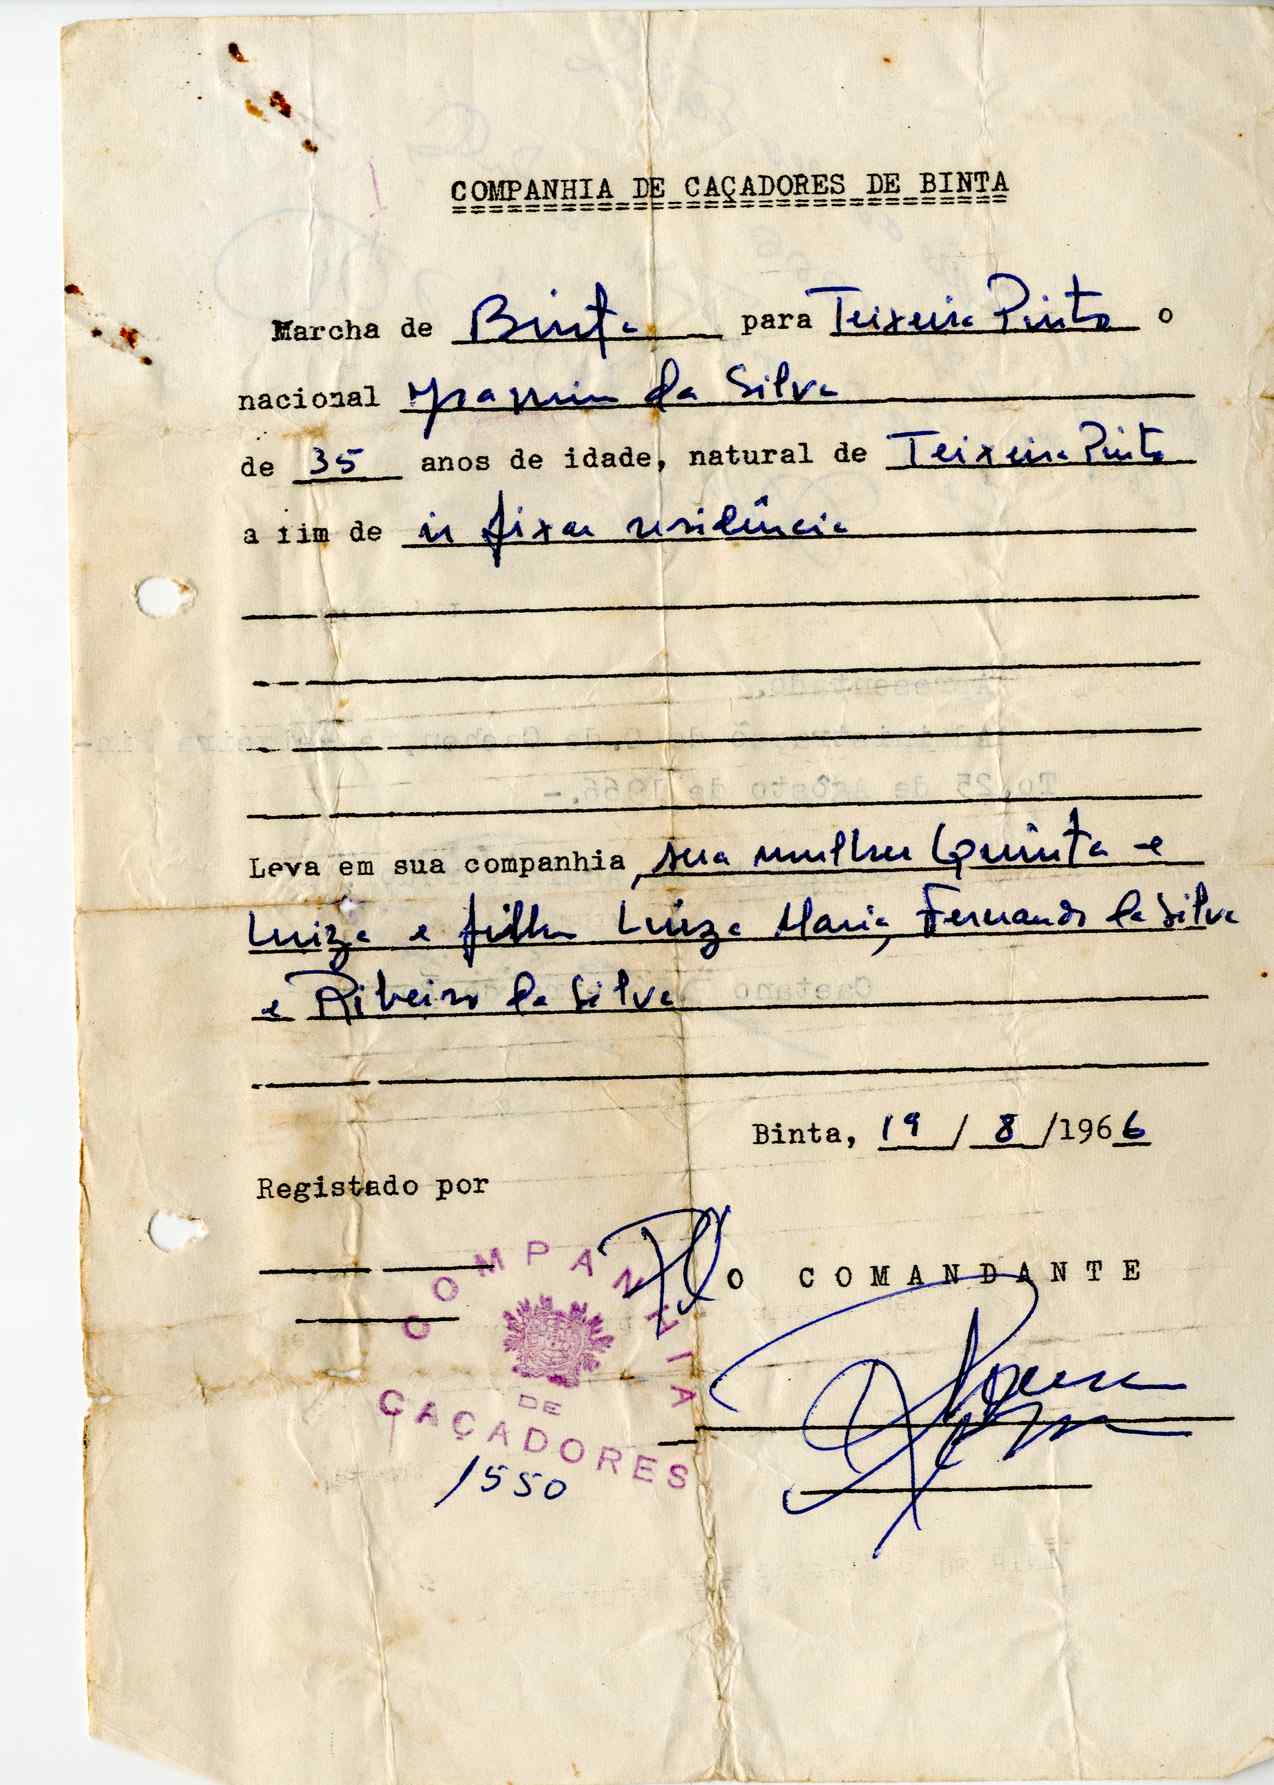 COMPANHIA DE CAÇADORES DE BINTA
Marcha de Binta para Teixeira Pinto o
nacional da Silva
de 35 anos de idade, natural de Teixeira Pinto
a fim de ir fixar residência
Leva em sua companhia, sua mulher Quinta e
Luiza e filhos Luiza Maria, Fernando da Silva
e Ribeiro da Silva
Binta, 19/8/1966
Registado por
O COMANDANTE
COMPANHIA
DE
CAÇADORES
1550